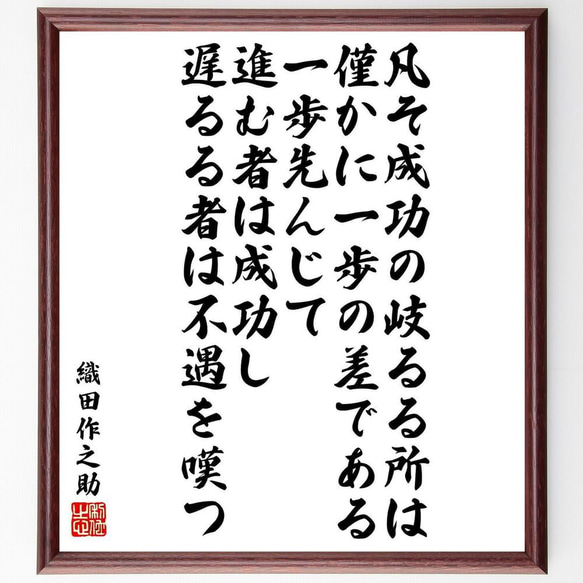 凡そ成功の岐るる所は
僅かに一歩の差である
一歩先んじて
進む者は成功し
遅るる者は不遇を嘆つ
織田作之助